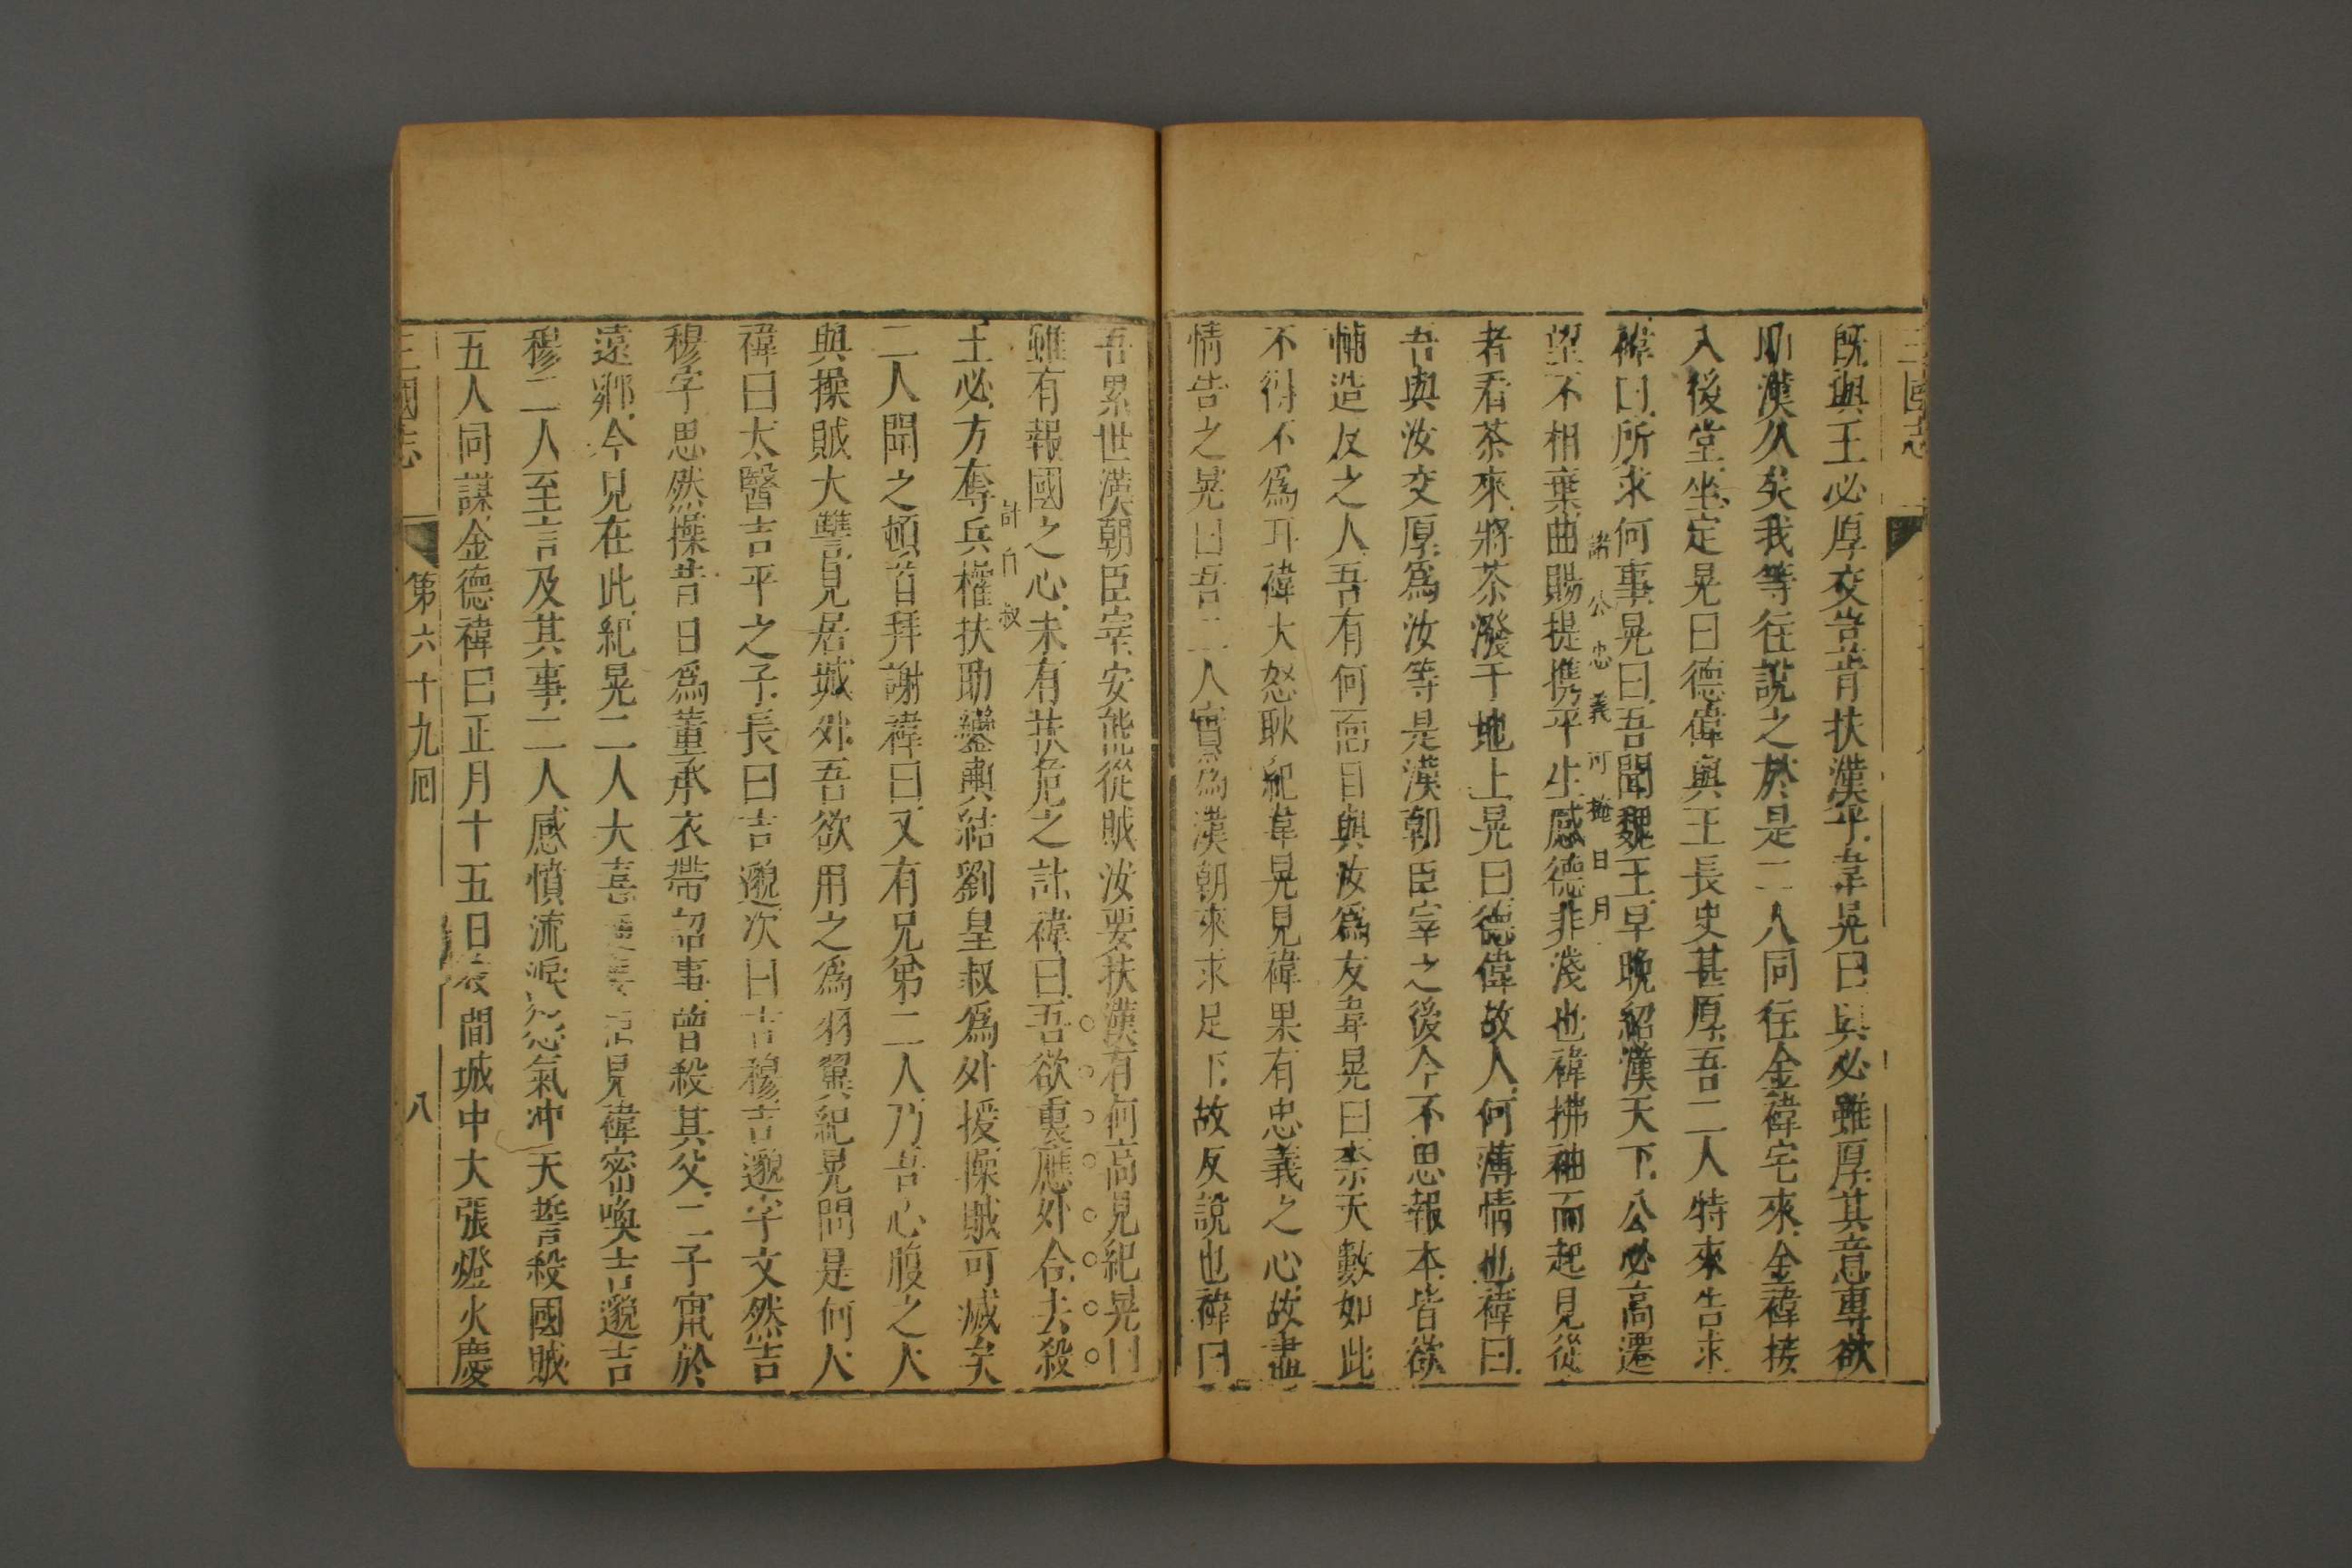 三國志
既與王必厚交豈肯扶漢乎韋晃曰與必雖厚其意專欲
助漢久矣我等往說之於是二人同往金褘宅來金褘接
入後堂坐定晃曰德偉與王長史甚厚吾二人特來告求
褘曰所求何事晃曰吾聞魏王早晚紹漢天下公必高遷
諸公忠義可掩日月
望不相棄曲賜提携平生感德非淺也褘拂袖而起見從
者看茶來將茶潑于地上晃曰德偉故人何薄情也褘曰
吾與汝交厚爲汝等是漢朝臣宰之後今不思報本皆欲
輔造反之人吾有何面目與汝爲友韋晃曰柰天數如此
不得不爲耳褘大怒耿紀韋晃見褘果有忠義之心故盡
情告之晃曰吾二人實爲漢朝來求足下故反說也褘曰
吾累世漢朝臣宰安能從賊汝要扶漢有何高見紀晃曰
雖有報國之心未有扶危之計褘曰吾欲裏應外合去殺
計自
王必方奪兵權扶助鑾輿結劉皇叔爲外援操賊可滅矣
二人聞之頓首拜謝褘曰又有兄弟二人乃吾心腹之人
與操賊大讐見居城外吾欲用之爲羽翼紀晃問是何人
褘曰太醫吉平之子長曰吉邈次曰吉穆吉邈字文然吉
穆字思然操昔日爲董承衣帶詔事曾殺其父二子竄於
遠鄉今見在此紀晃二人大喜見褘密喚吉邈吉
穆二人至言及其事二人感憤流淚怨氣冲天誓殺國賊
五人同謀金德褘曰正月十五日夜間城中大張燈火慶
三國志
第六十九囘
八